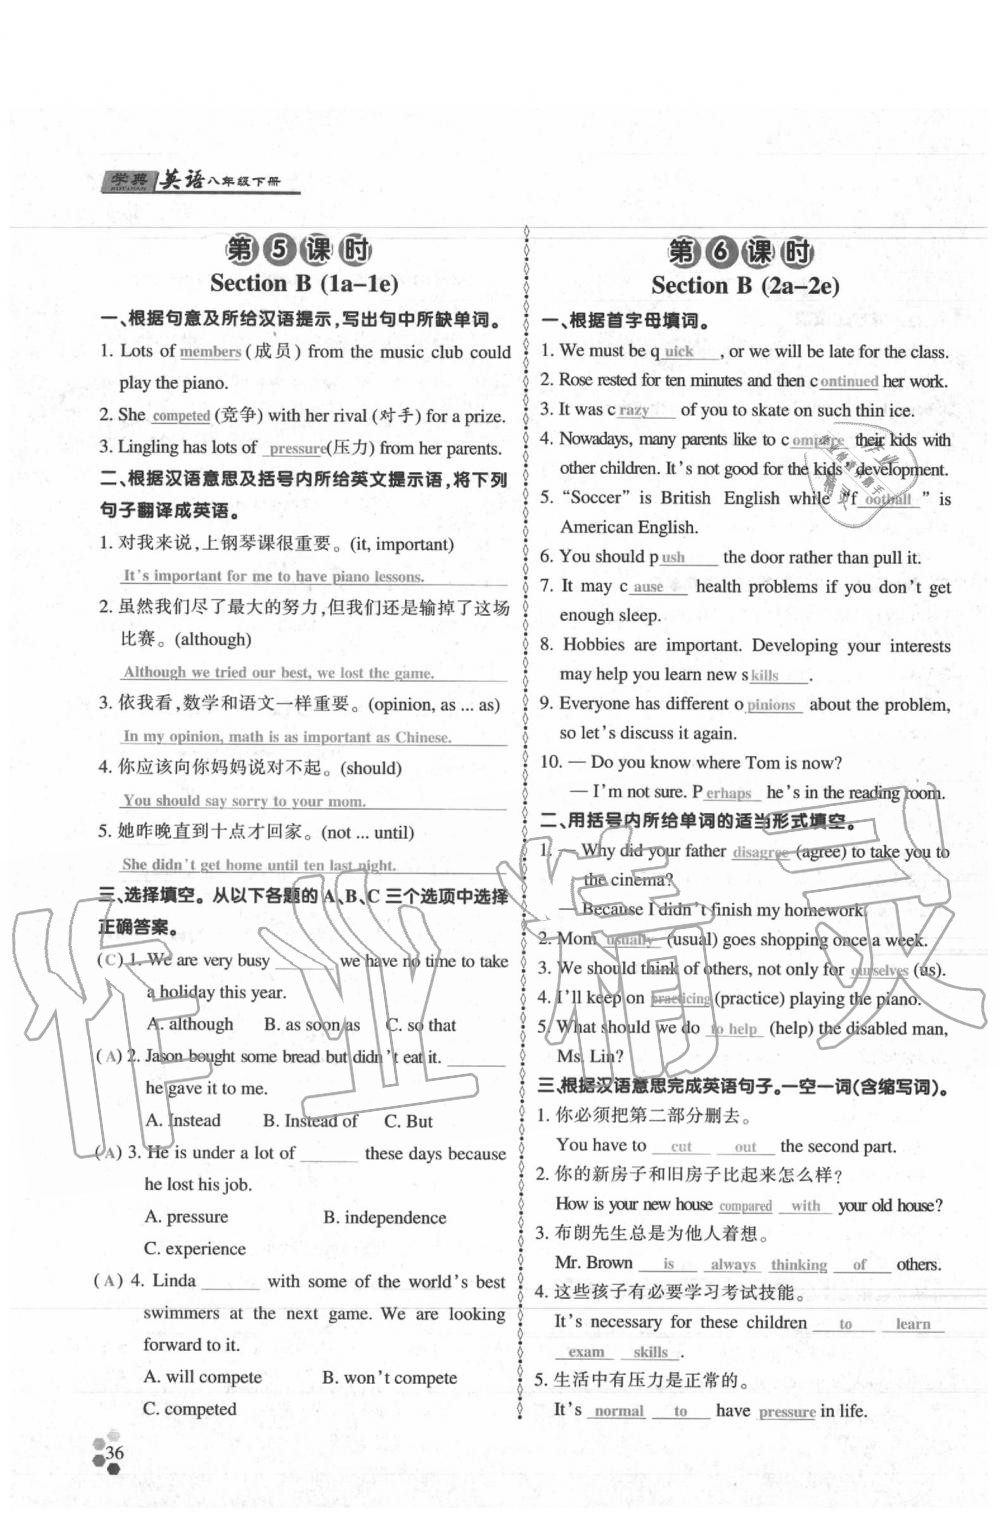 学典 XUEDIAN 英语八年级下册
第5课时
Section B (1a-1e)
一、根据句意及所给汉语提示,写出句中所缺单词。
1. Lots of members (成员) from the music club could
play the piano.
2. She competed (竞争) with her rival (对手) for a prize.
3. Lingling has lots of pressure(压力) from her parents.
二、根据汉语意思及括号内所给英文提示语,将下列
句子翻译成英语。
1. 对我来说,上钢琴课很重要。(it, important)
It's important for me to have piano lessons.
2. 虽然我们尽了最大的努力,但我们还是输掉了这场
比赛。(although)
Although we tried our best, we lost the game.
3. 依我看,数学和语文一样重要。(opinion, as ... as)
In my opinion, math is as important as Chinese.
4. 你应该向你妈妈说对不起。(should)
You should say sorry to your mom.
5. 她昨晚直到十点才回家。(not ... until)
She didn't get home until ten last night.
三、选择填空。从以下各题的 A、B、C 三个选项中选择
正确答案。
( C ) 1. We are very busy ______ we have no time to take
a holiday this year.
A. although B. as soon as C. so that
( A ) 2. Jason bought some bread but didn't eat it. ______
he gave it to me.
A. Instead B. Instead of C. But
( A ) 3. He is under a lot of ______ these days because
he lost his job.
A. pressure B. independence
C. experience
( A ) 4. Linda ______ with some of the world's best
swimmers at the next game. We are looking
forward to it.
A. will compete B. won't compete
C. competed
36
第6课时
Section B (2a-2e)
一、根据首字母填词。
1. We must be q uick , or we will be late for the class.
2. Rose rested for ten minutes and then c ontinued her work.
3. It was c razy of you to skate on such thin ice.
4. Nowadays, many parents like to c ompare their kids with
other children. It's not good for the kids' development.
5. "Soccer" is British English while "f ootball " is
American English.
6. You should p ush the door rather than pull it.
7. It may c ause health problems if you don't get
enough sleep.
8. Hobbies are important. Developing your interests
may help you learn new s kills .
9. Everyone has different o pinions about the problem,
so let's discuss it again.
10. — Do you know where Tom is now?
— I'm not sure. P erhaps he's in the reading room.
二、用括号内所给单词的适当形式填空。
1. — Why did your father disagree (agree) to take you to
the cinema?
— Because I didn't finish my homework.
2. Mom usually (usual) goes shopping once a week.
3. We should think of others, not only for ourselves (us).
4. I'll keep on practicing (practice) playing the piano.
5. What should we do to help (help) the disabled man,
Ms. Lin?
三、根据汉语意思完成英语句子。一空一词(含缩写词)。
1. 你必须把第二部分删去。
You have to cut out the second part.
2. 你的新房子和旧房子比起来怎么样?
How is your new house compared with your old house?
3. 布朗先生总是为他人着想。
Mr. Brown is always thinking of others.
4. 这些孩子有必要学习考试技能。
It's necessary for these children to learn
exam skills .
5. 生活中有压力是正常的。
It's normal to have pressure in life.
作业精灵